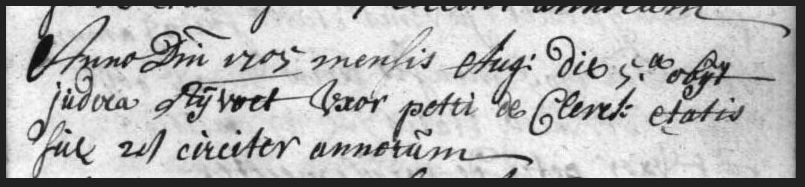 Anno Dñi 1705 mensis Aug: die 5.a obijt
judoca Rijvoet Uxor petri de Clerck etatis
suæ 28 circiter annorum